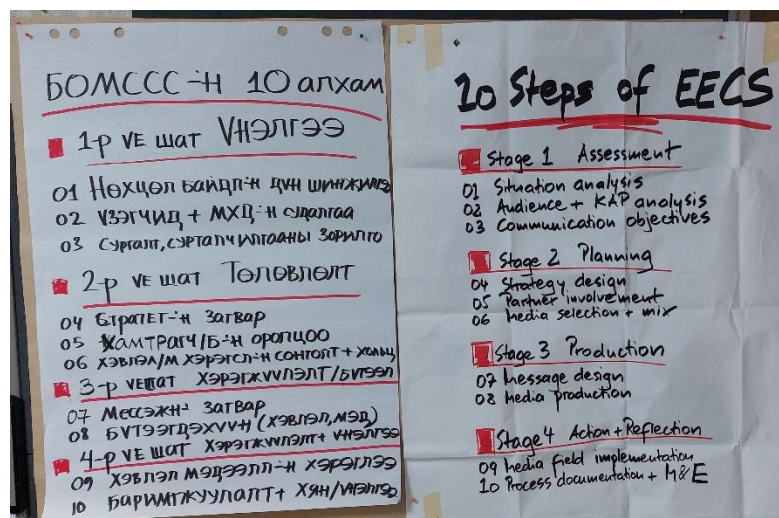 БОМССС-Н 10 алхам
1-р VE ШАТ VНЭЛГЭЭ
01 НӨХЦӨЛ БАЙДЛ-Н ДVН ШИНЖИЛГЭ
02 VЗЭГЧИД + МХД-Н СУДАЛГАА
03 СУРГАЛТ, СУРТАЛЧИЛГААНЫ ЗОРИЛГО
2-р VE ШАТ ТӨЛӨВЛӨЛТ
04 СТРАТЕГ-Н ЗАГВАР
05 ХАМТРАГЧ/Б-Н ОРОЛЦОО
06 ХЭВЛЭЛ/М ХЭРЭГСЛ-Н СОНГОЛТ + ХОЛЬЦ
3-р VE ШАТ ХЭРЭГЖVVЛЭЛТ/БVТЭЭЛ
07 МЕССЭЖН- ЗАГВАР
08 БVТЭЭГДЭХVVН (ХЭВЛЭЛ, МЭД)
4-р VE ШАТ ХЭРЭГЖVVЛЭЛТ + VНЭЛГЭЭ
09 ХЭВЛЭЛ МЭДЭЭЛЛ-Н ХЭРЭГЛЭЭ
10 БАРИМТЖУУЛАЛТ + ХЯН/VНЭЛГЭЭ
10 Steps of EECS
Stage 1 Assessment
01 Situation analysis
02 Audience + KAP analysis
03 Communication objectives
Stage 2 Planning
04 Strategy design
05 Partner involvement
06 Media selection + mix
Stage 3 Production
07 Message design
08 Media production
Stage 4 Action + Reflection
09 Media field implementation
10 Process documentation + M&E